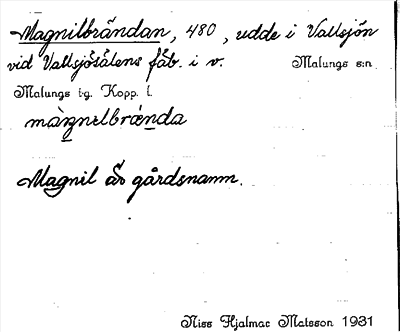 Magnilbrändan, 480, udde i Vallsjön
vid Vallsjösälens fäb. i v. Malungs s:n
Malungs tg. Kopp. l.
màgnelbrǽnda
Magnil är gårdsnamn.
Niss Hjalmar Matsson 1931